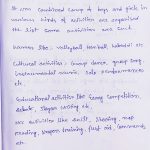 It was Combined Camp of boys and girls in
various kinds of activities are organised
the list some activities are such
Games like: volleyball, football, kabaddi etc
Cultural activities: Group dance, group song
instrumental music, Solo performances
etc.
Educational activities like Essay Competition,
debate, Slogan writing etc.
NCC activities like drill, Shooting, map
reading, weapon training, first aid, Commands
etc